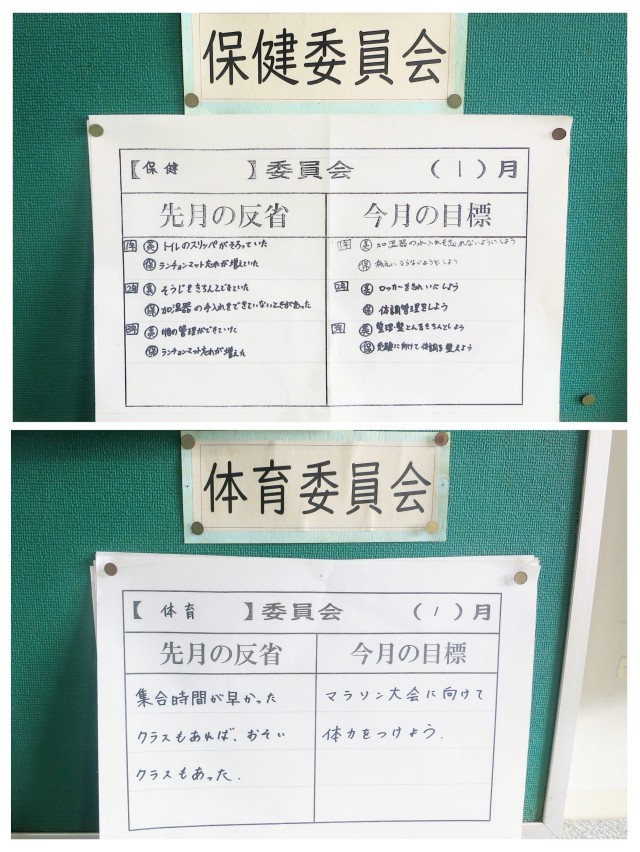 保健委員会
【保健】委員会 (1)月
先月の反省
今月の目標
1年 美 トイレのスリッパがそろっていた
保 ランチョンマット忘れが増えていた
2年 美 そうじをきちんとできていた
保 加湿器の手入れをできていないときがあった
3年 美 物の管理ができていた
保 ランチョンマット忘れが増えた
1年 美 加湿器の手入れを忘れないようにしよう
保
2年 美 ロッカーをきれいにしよう
保 体調管理をしよう
3年 美 整理・整とんをきちんとしよう
保 受験に向けて体調を整えよう
体育委員会
【体育】委員会 (1)月
先月の反省
今月の目標
集合時間が早かった
クラスもあれば、おそい
クラスもあった.
マラソン大会に向けて
体力をつけよう.